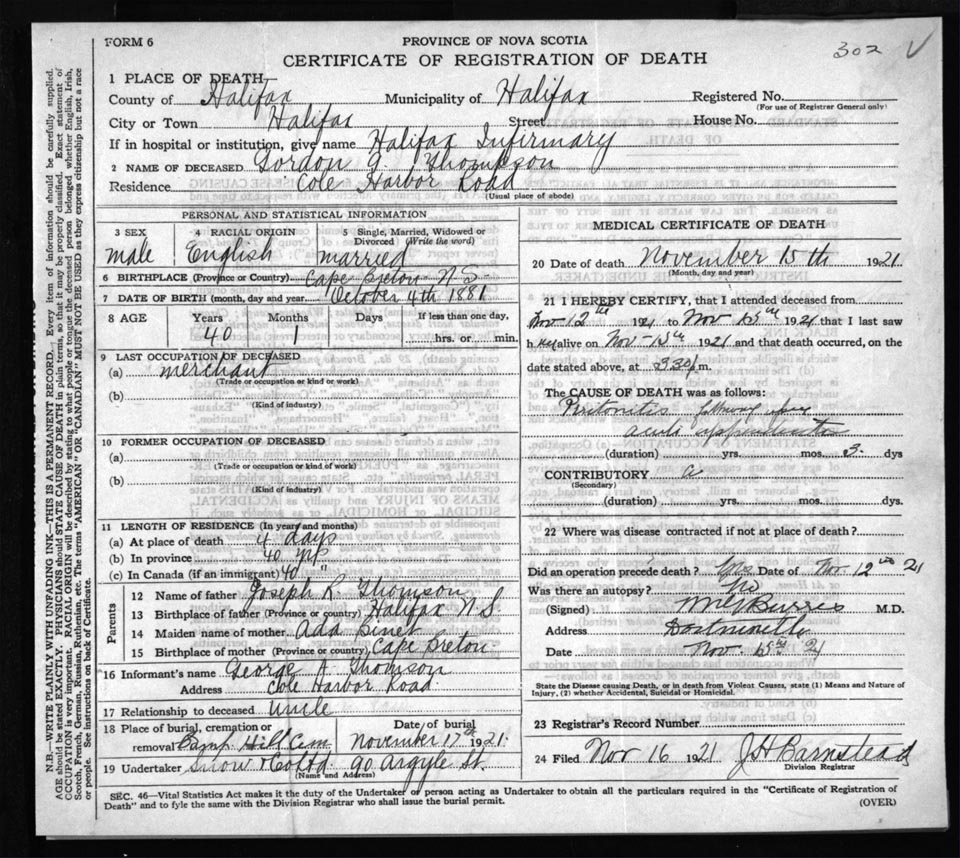 FORM 6
PROVINCE OF NOVA SCOTIA
302 V
CERTIFICATE OF REGISTRATION OF DEATH
1 PLACE OF DEATH—
County of Halifax Municipality of Halifax Registered No.
(For use of Registrar General only)
City or Town Halifax Street House No.
If in hospital or institution, give name Halifax Infirmary
2 NAME OF DECEASED Gordon G. Thompson
Residence Cole Harbor Road
(Usual place of abode)
PERSONAL AND STATISTICAL INFORMATION
3 SEX 4 RACIAL ORIGIN 5 Single, Married, Widowed or Divorced (Write the word)
male English married
6 BIRTHPLACE (Province or Country) Cape Breton N S
7 DATE OF BIRTH (month, day and year) October 4th 1881
8 AGE Years Months Days If less than one day,
40 1 hrs. or min.
9 LAST OCCUPATION OF DECEASED
(a) merchant
(Trade or occupation or kind or work)
(b)
(Kind of industry)
10 FORMER OCCUPATION OF DECEASED
(a)
(Trade or occupation or kind of work)
(b)
(Kind of Industry)
11 LENGTH OF RESIDENCE (In years and months)
(a) At place of death 4 days
(b) In province 40 yrs
(c) In Canada (if an immigrant) 40 "
Parents
12 Name of father Joseph R. Thomson
13 Birthplace of father (Province or country) Halifax N S
14 Maiden name of mother Ada
15 Birthplace of mother (Province or country) Cape Breton
16 Informant's name George A. Thomson
Address Cole Harbor Road
17 Relationship to deceased Uncle
18 Place of burial, cremation or removal Camp Hill Cem Date of burial November 17th 1921.
19 Undertaker Snow & Co Ltd 90 Argyle St.
(Name and Address)
MEDICAL CERTIFICATE OF DEATH
20 Date of death November 15th 1921
(Month, day and year)
21 I HEREBY CERTIFY, that I attended deceased from
Nov 12th 1921 to Nov 15th 1921 that I last saw
h alive on Nov 15th 1921 and that death occurred, on the
date stated above, at m.
The CAUSE OF DEATH was as follows:
Peritonitis following
acute appendicitis
(duration) yrs. mos. 3 dys
CONTRIBUTORY
(Secondary)
(duration) yrs. mos. dys.
22 Where was disease contracted if not at place of death?
Did an operation precede death? Yes Date of Nov 12 21
Was there an autopsy? No
(Signed) M.D.
Address Dartmouth
Date Nov. 15th 21
State the Disease causing Death, or in death from Violent Causes, state (1) Means and Nature of Injury, (2) whether Accidental, Suicidal or Homicidal.
23 Registrar's Record Number
24 Filed Nov 16 1921 J H Barnstead
Division Registrar
SEC. 46—Vital Statistics Act makes it the duty of the Undertaker or person acting as Undertaker to obtain all the particulars required in the "Certificate of Registration of
Death" and to fyle the same with the Division Registrar who shall issue the burial permit.
(OVER)
N.B.—WRITE PLAINLY WITH UNFADING INK—THIS IS A PERMANENT RECORD. Every item of information should be carefully supplied.
AGE should be stated EXACTLY. PHYSICIANS should STATE CAUSE OF DEATH in plain terms, so that it may be properly classified. Exact statement of
OCCUPATION is very important. RACIAL ORIGIN will be described by stating to what people or tongue the deceased person belonged, whether English, Irish,
Scotch, French, German, Russian, Ruthenian, etc. The terms "AMERICAN" or "CANADIAN" MUST NOT BE USED as they express citizenship but not a race
or people. See instructions on back of Certificate.